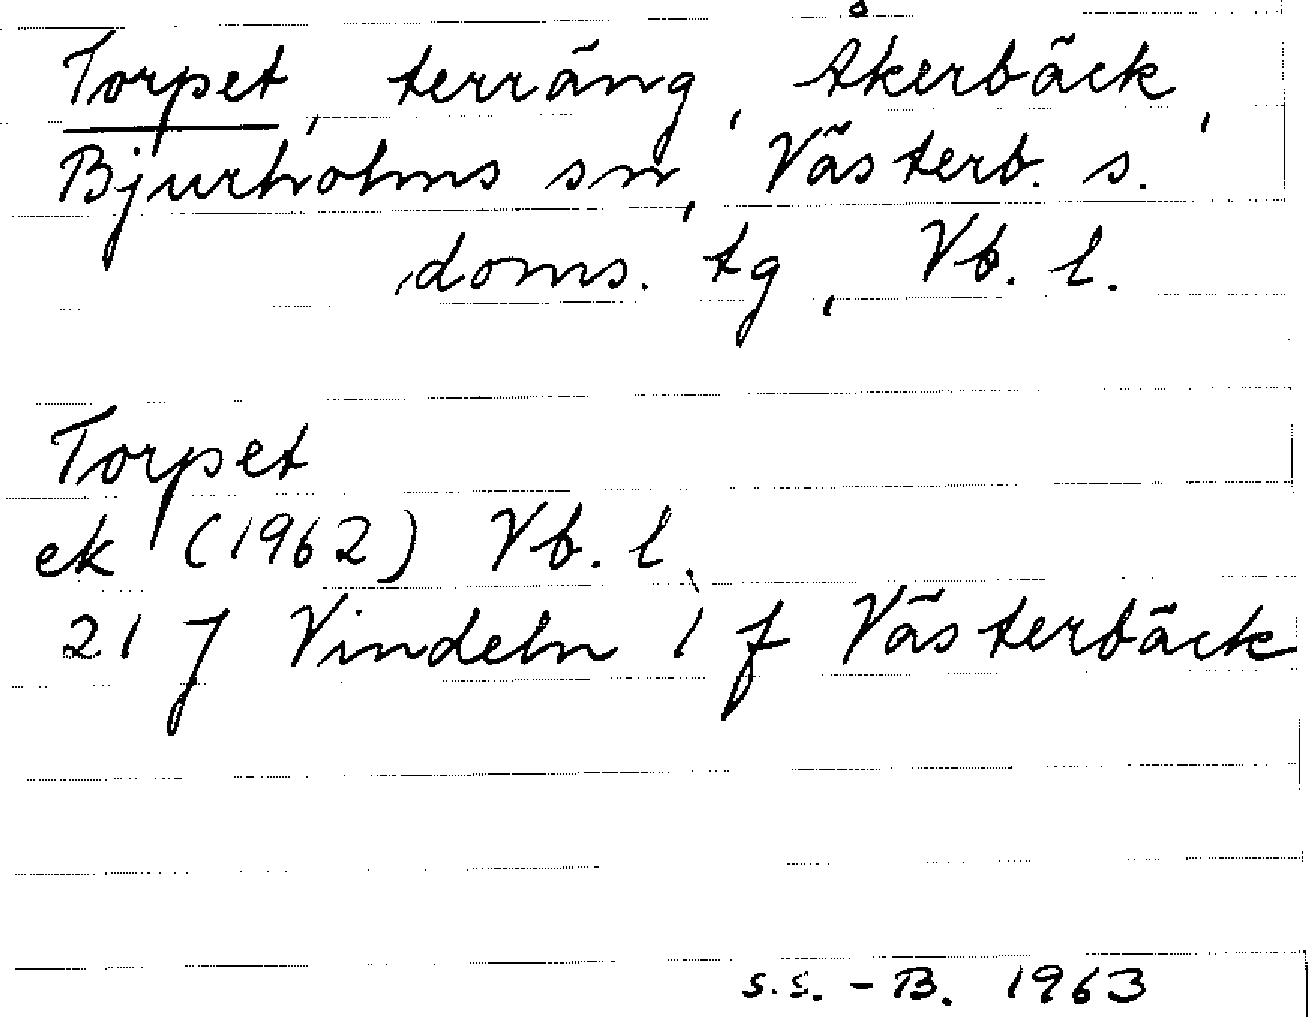 Torpet, terräng, Åkerbäck,
Bjurholms sn, Västerb. s.
doms. tg, Vb. l.
Torpet
ek (1962) Vb. l.
21 J Vindeln 1 f Västerbäck
s.s. - B. 1963